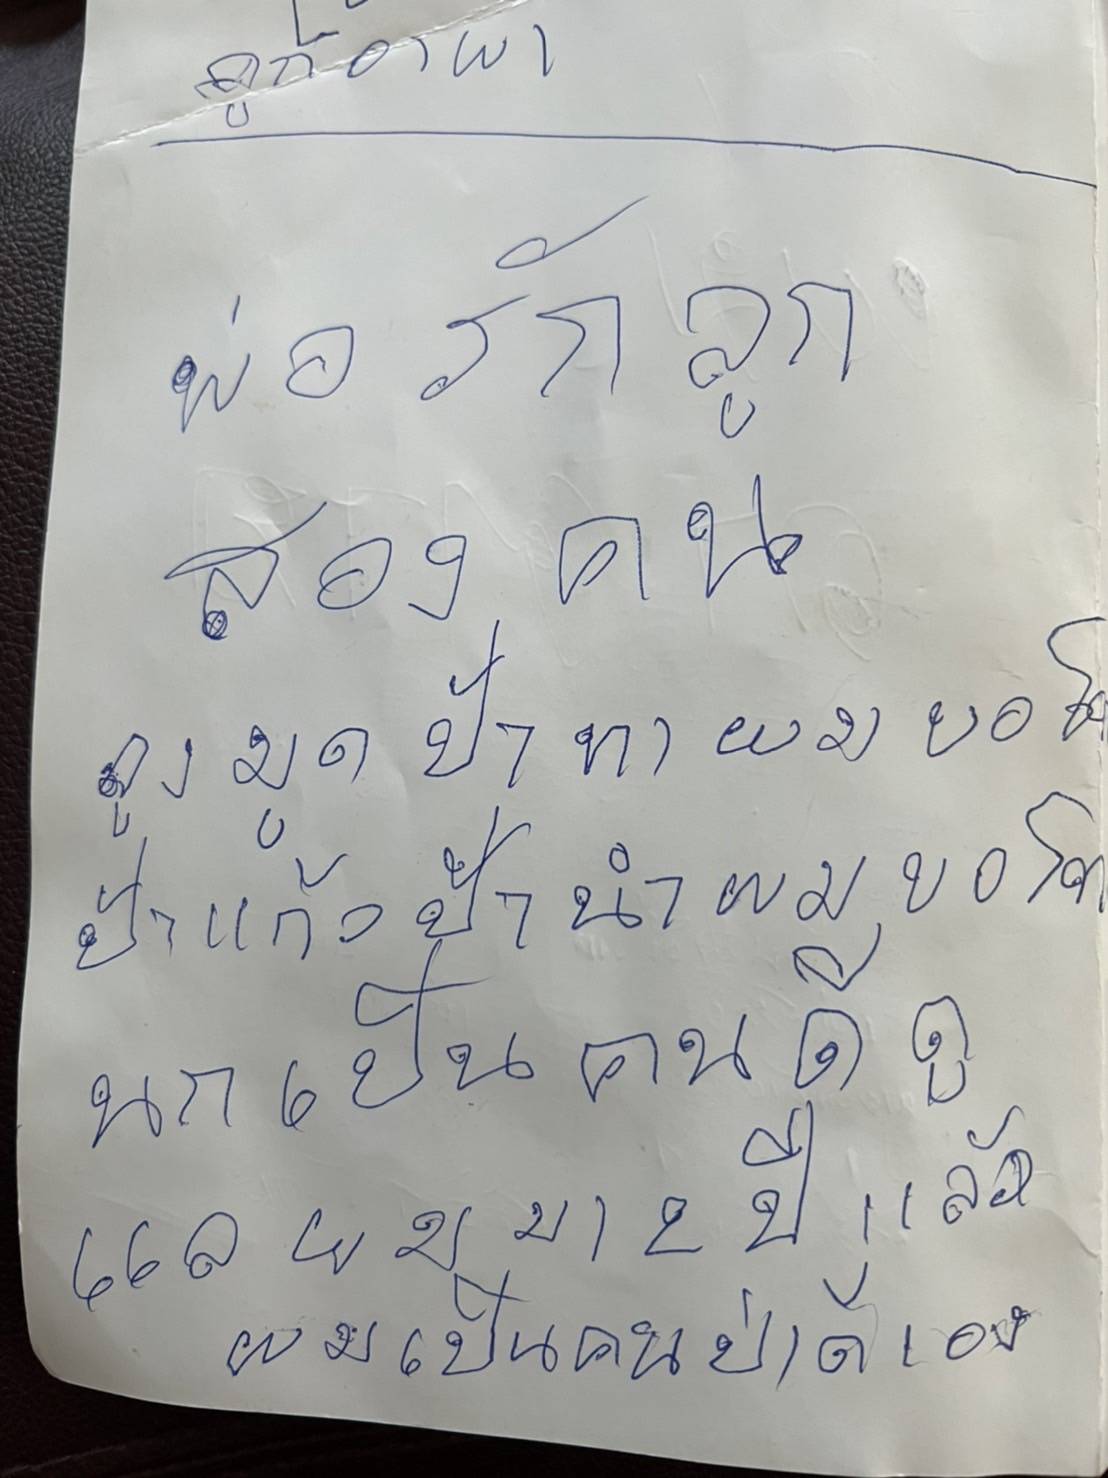 ลูกอาผา
พ่อ รัก ลูก
สอง คน
ลูง มูด ป้า ทา ผม ขอ
ป้า แก้ว ป้า นำ ผม ขอ
นก เป็น คน ดี ดู
แล ผม มา 2 ปี แล้ว
ผม เป็น คน